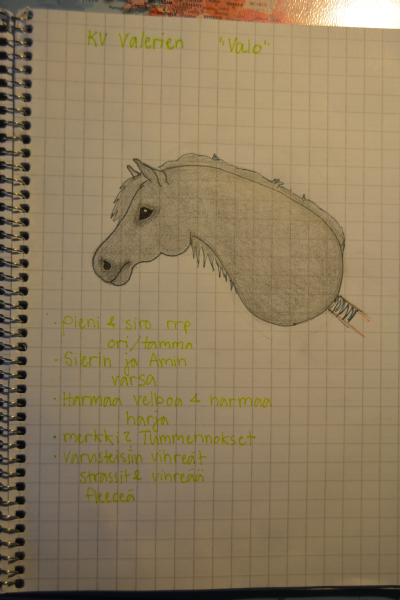 KV Valerien "Valo"
· Pieni & siro rrp
ori/tamma
· Silerin ja Amin
varsa
· Harmaa velboa & harmaa
harja
· merkki? Tummennokset
· varusteisiin vihreät
strassit & vihreää
fleeceä